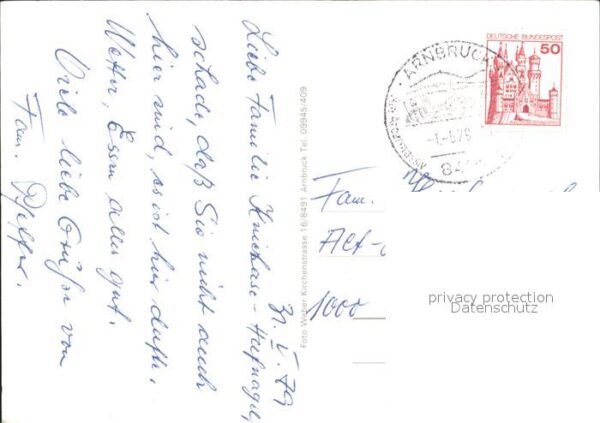 31. V. 79
Liebe Familie Kniehase-Hufnagel,
schade, daß Sie nicht auch
hier sind, es ist hier dufte.
Wetter, Essen alles gut.
Viele liebe Grüße von
Fam. Pfeffer.
Foto Weber Kirchenstrasse 16/8491 Arnbruck Tel. 09945/409
DEUTSCHE BUNDESPOST
50
ARNBRUCK
-1.-6.79
84
Fam.
Alt-
1000
privacy protection
Datenschutz